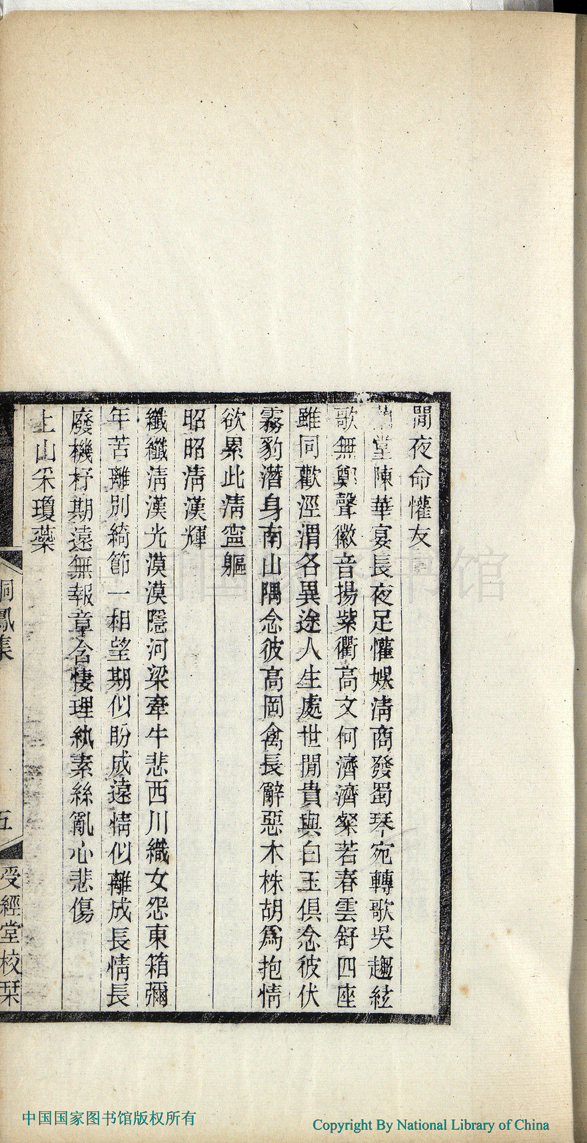 閒夜命懽友
堂陳華宴長夜足懽娛清商發蜀琴宛轉歌吳趨絃
歌無鄭聲徽音揚紫衢高文何濟濟粲若春雲舒四座
雖同歡涇渭各異途人生處世閒貴與白玉俱念彼伏
霧豹潛身南山隅念彼高岡禽長辭惡木株胡爲抱情
欲累此清寍軀
昭昭淸漢輝
纖纖淸漢光漠漠隱河梁牽牛悲西川織女怨東箱彌
年苦離別綺節一相望期似盼成遠情似離成長情長
廢機杼期遠無報章含悽理紈素絲亂心悲傷
上山采瓊蘂
桐鳳集
五
受經堂校栞
中国国家图书馆版权所有
Copyright By National Library of China